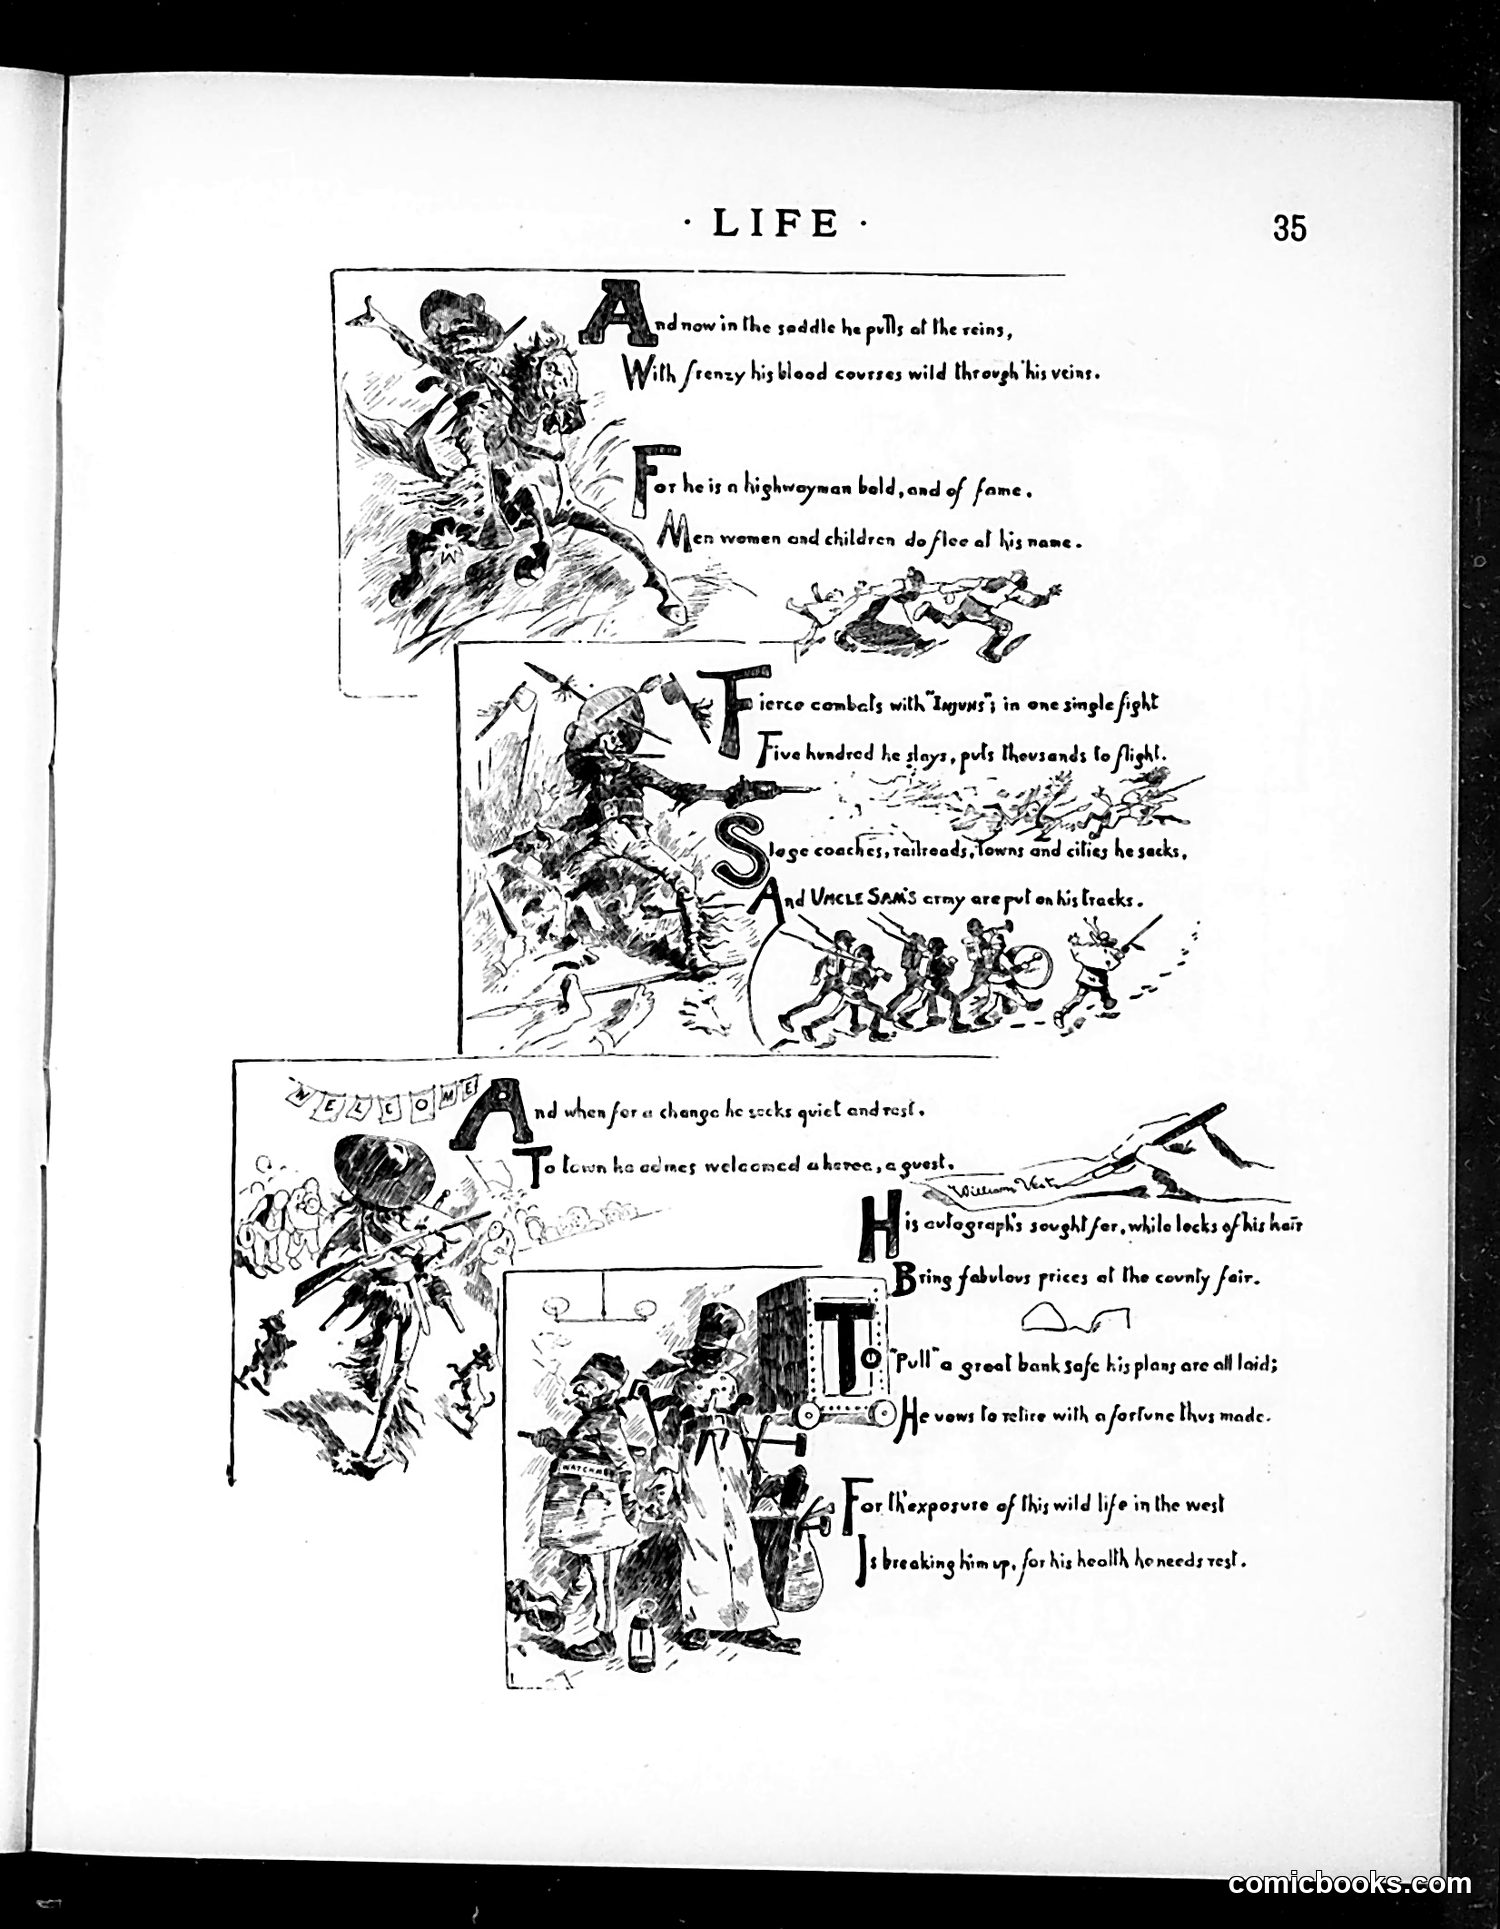 · LIFE ·
35
And now in the saddle he pulls at the reins,
With frenzy his blood courses wild through his veins.
For he is a highwayman bold, and of fame.
Men women and children do flee at his name.
Fierce combats with "INJUNS"; in one single fight
Five hundred he slays, puts thousands to flight.
Stage coaches, railroads, towns and cities he sacks,
And UNCLE SAM'S army are put on his tracks.
WELCOME
And when for a change he seeks quiet and rest.
To town he comes welcomed a heroe, a guest.
William
His autograph's sought for, while locks of his hair
Bring fabulous prices at the county fair.
To "Pull" a great bank safe his plans are all laid;
He vows to retire with a fortune thus made.
WATCHMAN
For th'exposure of this wild life in the west
Is breaking him up, for his health he needs rest.
comicbooks.com